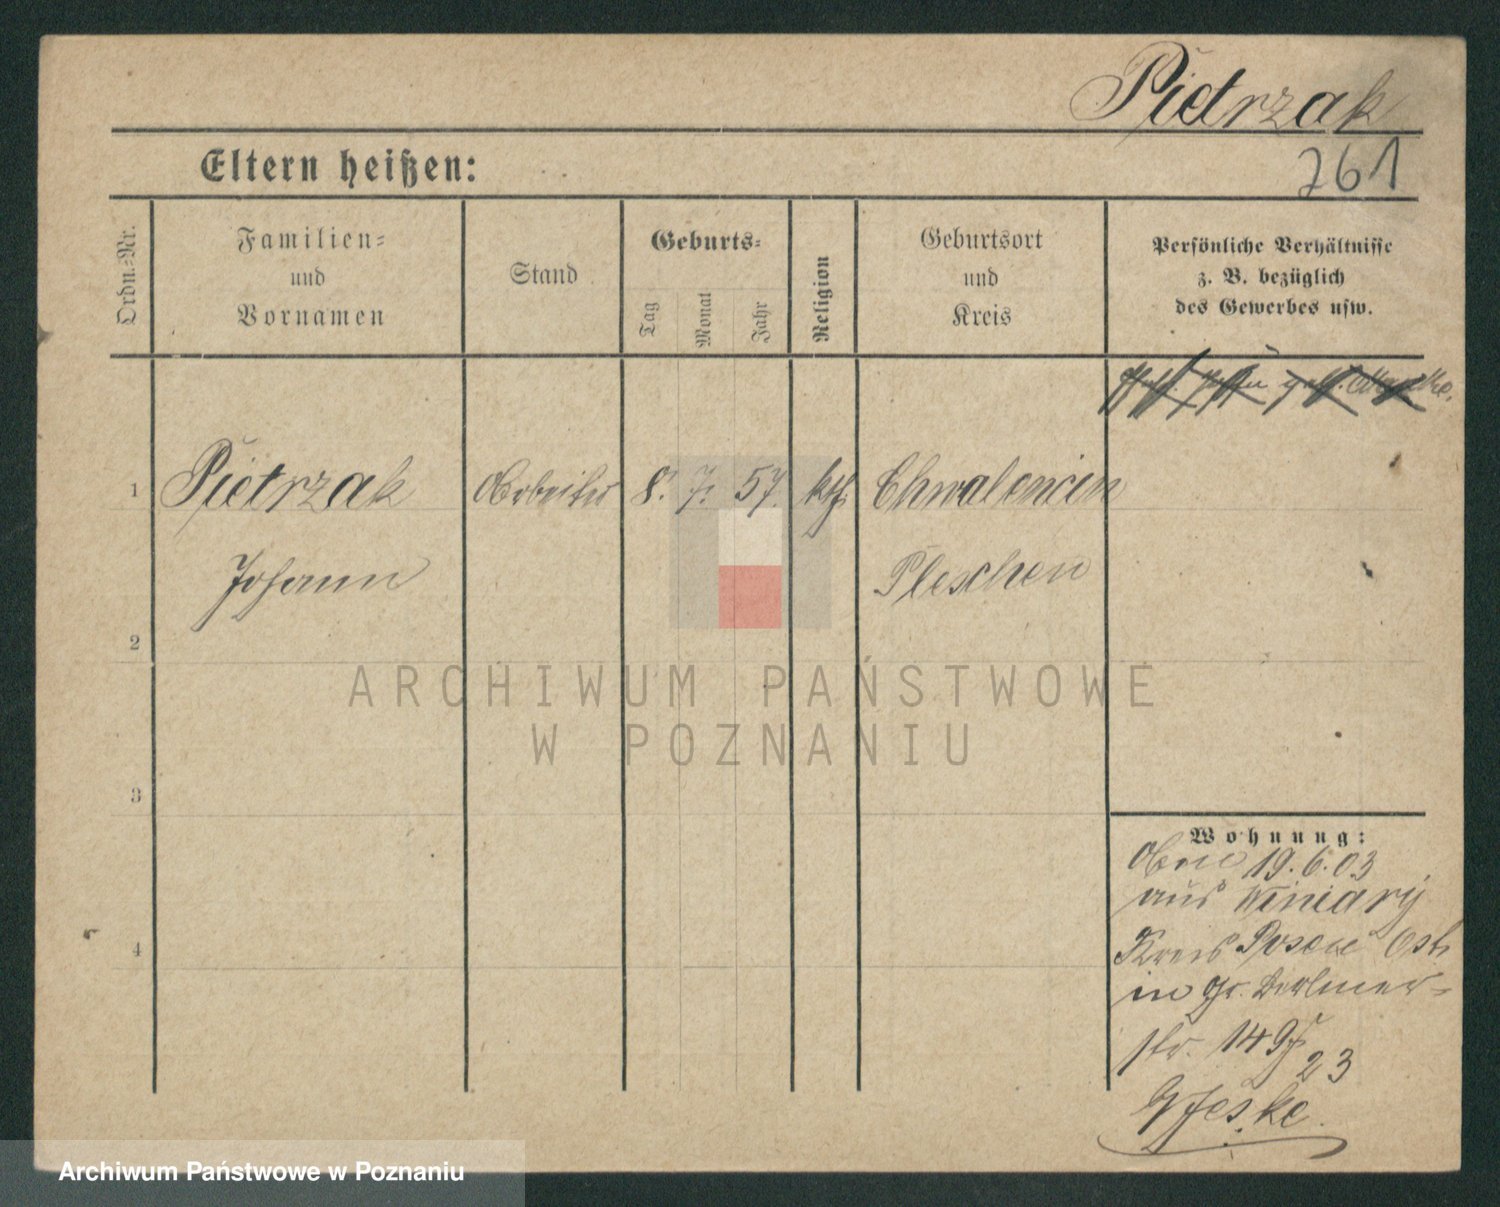 Pietrzak
761
Eltern heißen:
Ordn.-Nr.
Familien-
und
Vornamen
Stand
Geburts-
Tag
Monat
Jahr
Religion
Geburtsort
und
Kreis
Persönliche Verhältnisse
z. B. bezüglich
des Gewerbes usw.
1 Pietrzak Arbeiter 8. 7. 57. kth. Chwalencin
Johann Pleschen
2
3
4
ARCHIWUM PAŃSTWOWE
W POZNANIU
Wohnung:
19.6.03
aus Winiary
Kreis Posen Ost
in Gr. Berliner-
str. 149
23
Jeske
Archiwum Państwowe w Poznaniu